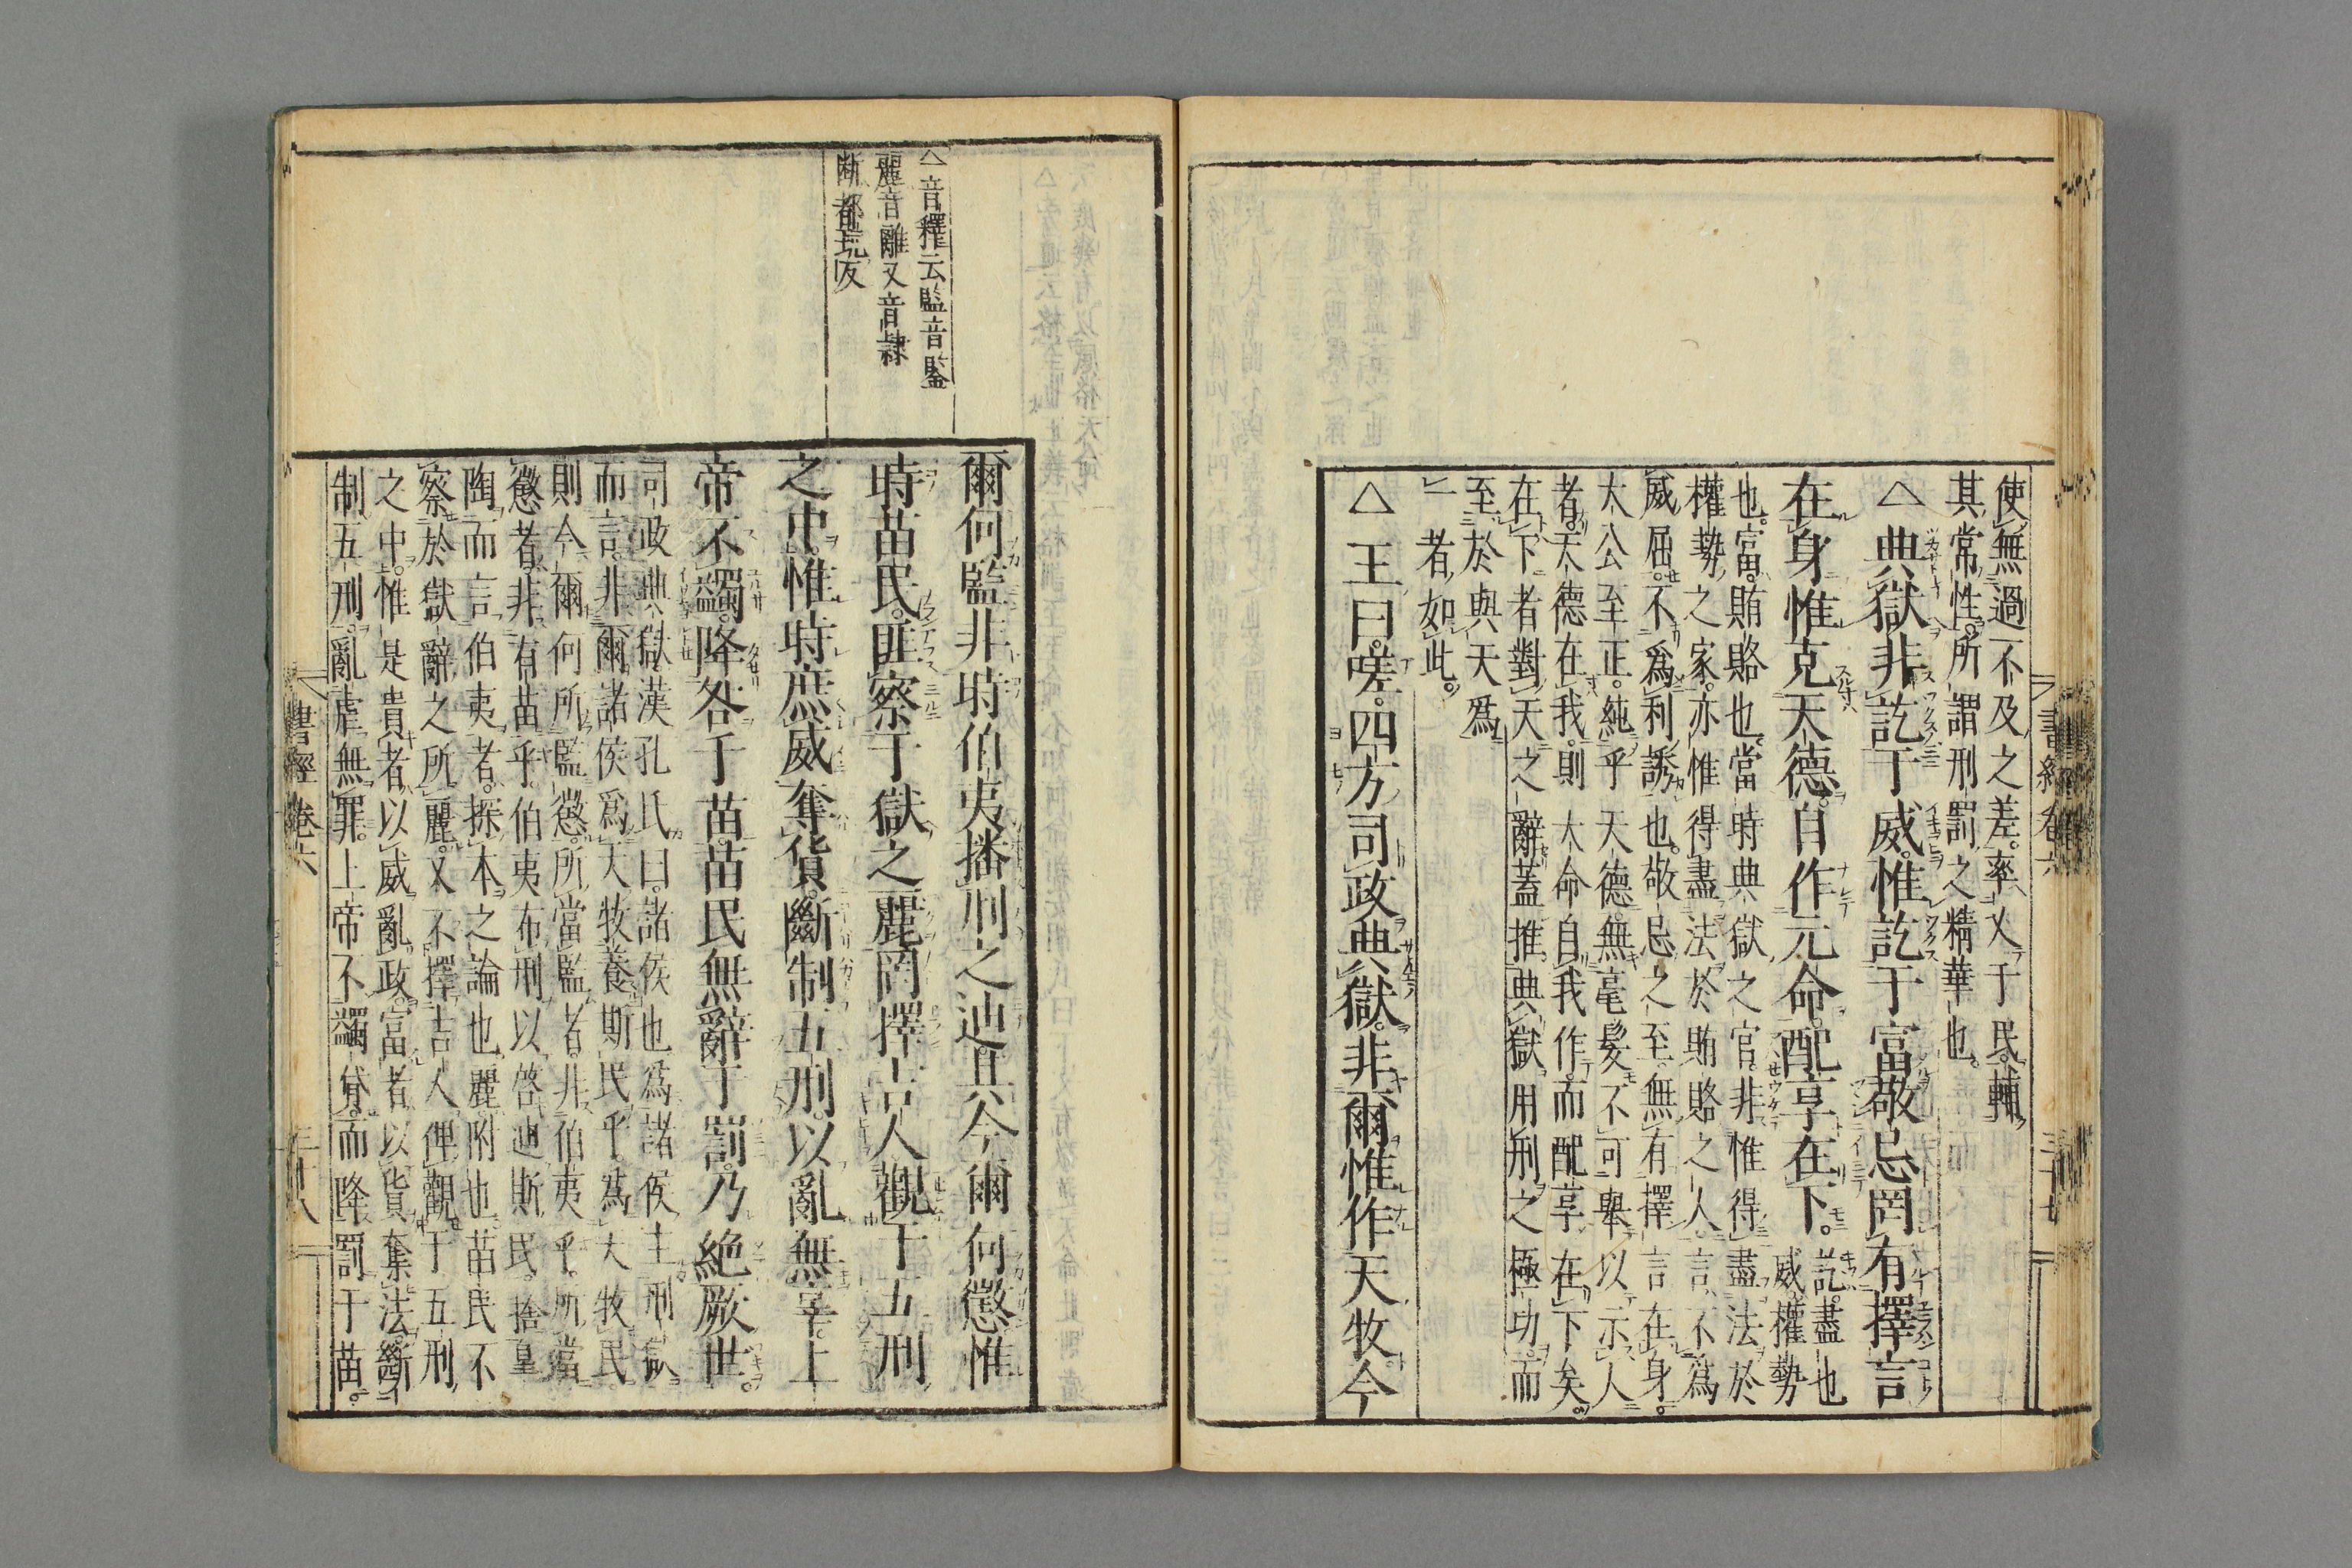 使無過不及之差率乂于民輔
其常性所謂刑罰之精華也
△典獄非訖于威惟訖于富敬忌罔有擇言
在身惟克天德自作元命配享在下
訖盡也
威權勢
也富賂賂也當時典獄之官非惟得盡法於
權勢之家亦惟得盡法於賄賂之人言不爲
威屈不爲利誘也敬忌之至無有擇言在身
大公至正純乎天德無毫髮不可舉以示人
者天德在我則大命自我作而配享在下矣
在下者對天之辭蓋推典獄用刑之極功而
至於與天爲
一者如此
△王曰嗟四方司政典獄非爾惟作天牧今
書經卷六
三十七
△音釋云監音鑒
麗音離又音隷
斷都玩反
爾何監非時伯夷播刑之迪其今爾何懲惟
時苗民匪察于獄之麗罔擇吉人觀于五刑
之中惟時庶威奪貨斷制五刑以亂無辜上
帝不蠲降咎于苗苗民無辭于罰乃絶厥世
司政典獄漢孔氏曰諸侯也爲諸侯主刑獄
而言非爾諸侯爲天牧養斯民乎爲天牧民
則今爾何所監懲所當監者非伯夷乎所當
懲者非有苗乎伯夷布刑以啓迪斯民捨皐
陶而言伯夷者探本之論也麗附也苗民不
察於獄辭之所麗又不擇吉人俾觀于五刑
之中惟是貴者以威亂政富者以貨奪法斷
制五刑亂虐無罪上帝不蠲貸而降罰于苗
書經卷六
三十八